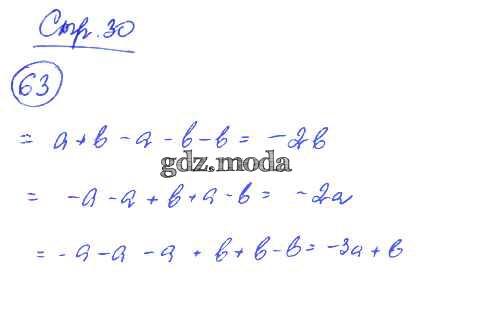 Стр. 30
63
= a + b - a - b - b = -2b
gdz.moda
= -a - a + b + a - b = -2a
= -a - a - a + b + b - b = -3a + b